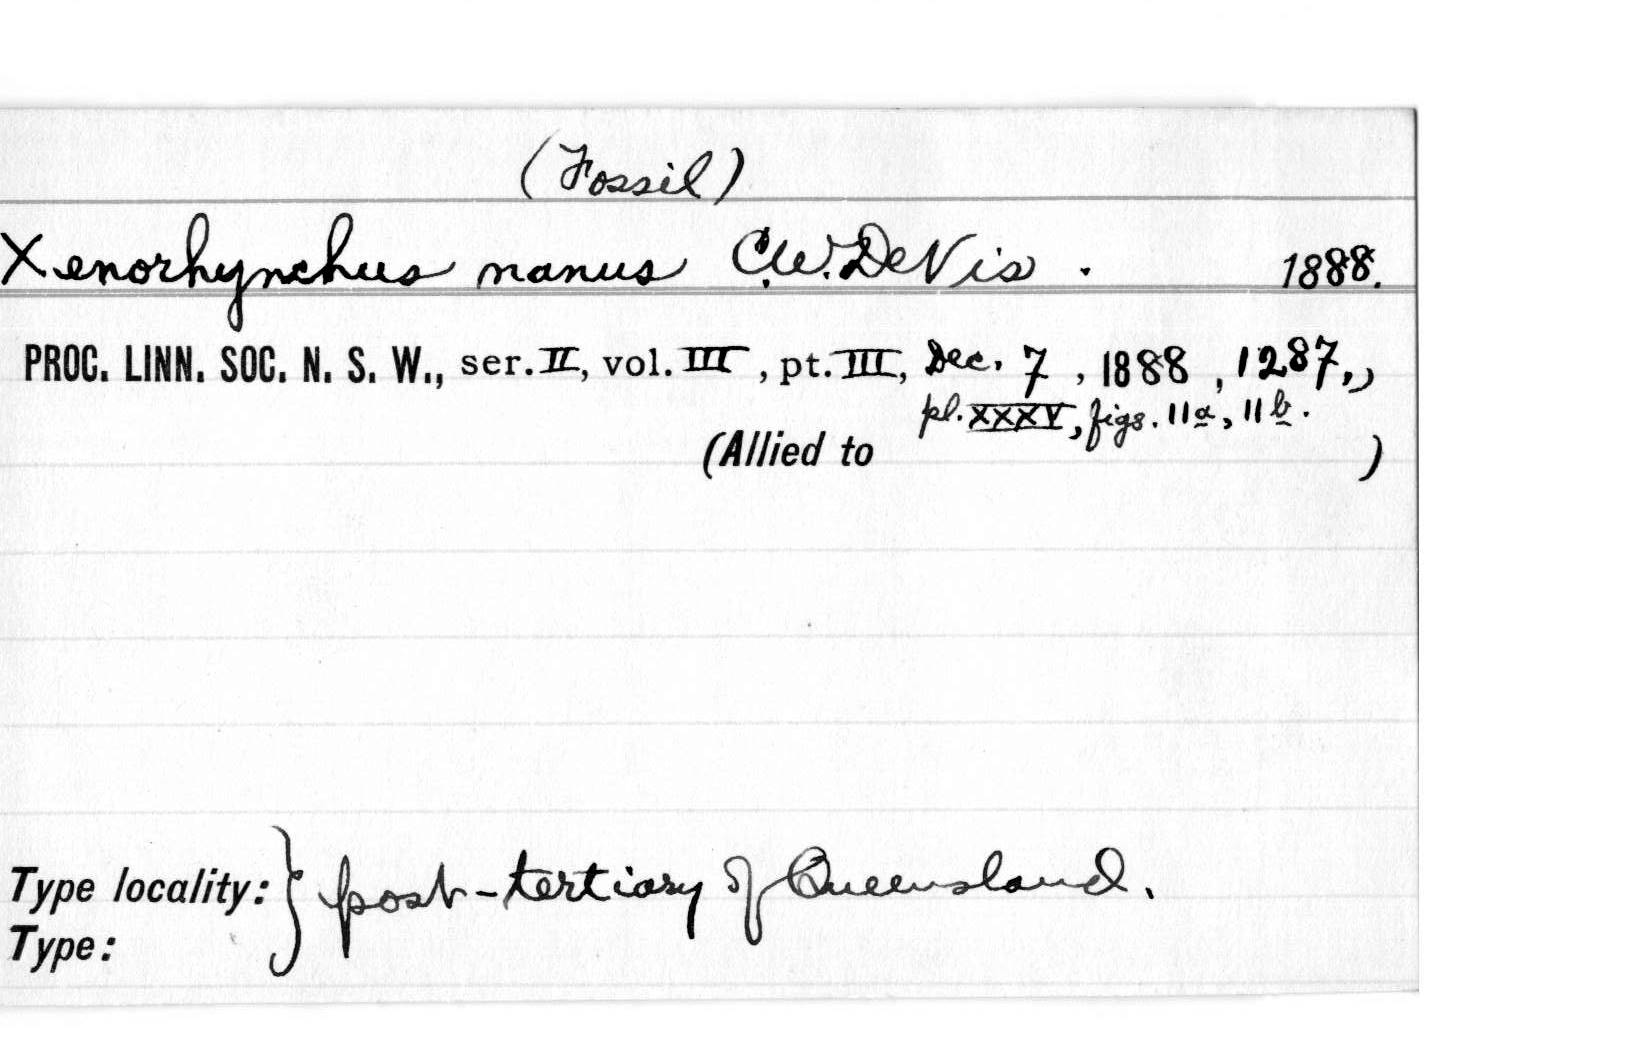 (Fossil)
Xenorhynchus nanus C.W. DeVis. 1888.
PROC. LINN. SOC. N. S. W., ser. II, vol. III, pt. III, Dec. 7, 1888, 1287,,
pl. XXXV, figs. 11a, 11b.
(Allied to )
Type locality: } post-tertiary of Queensland.
Type: